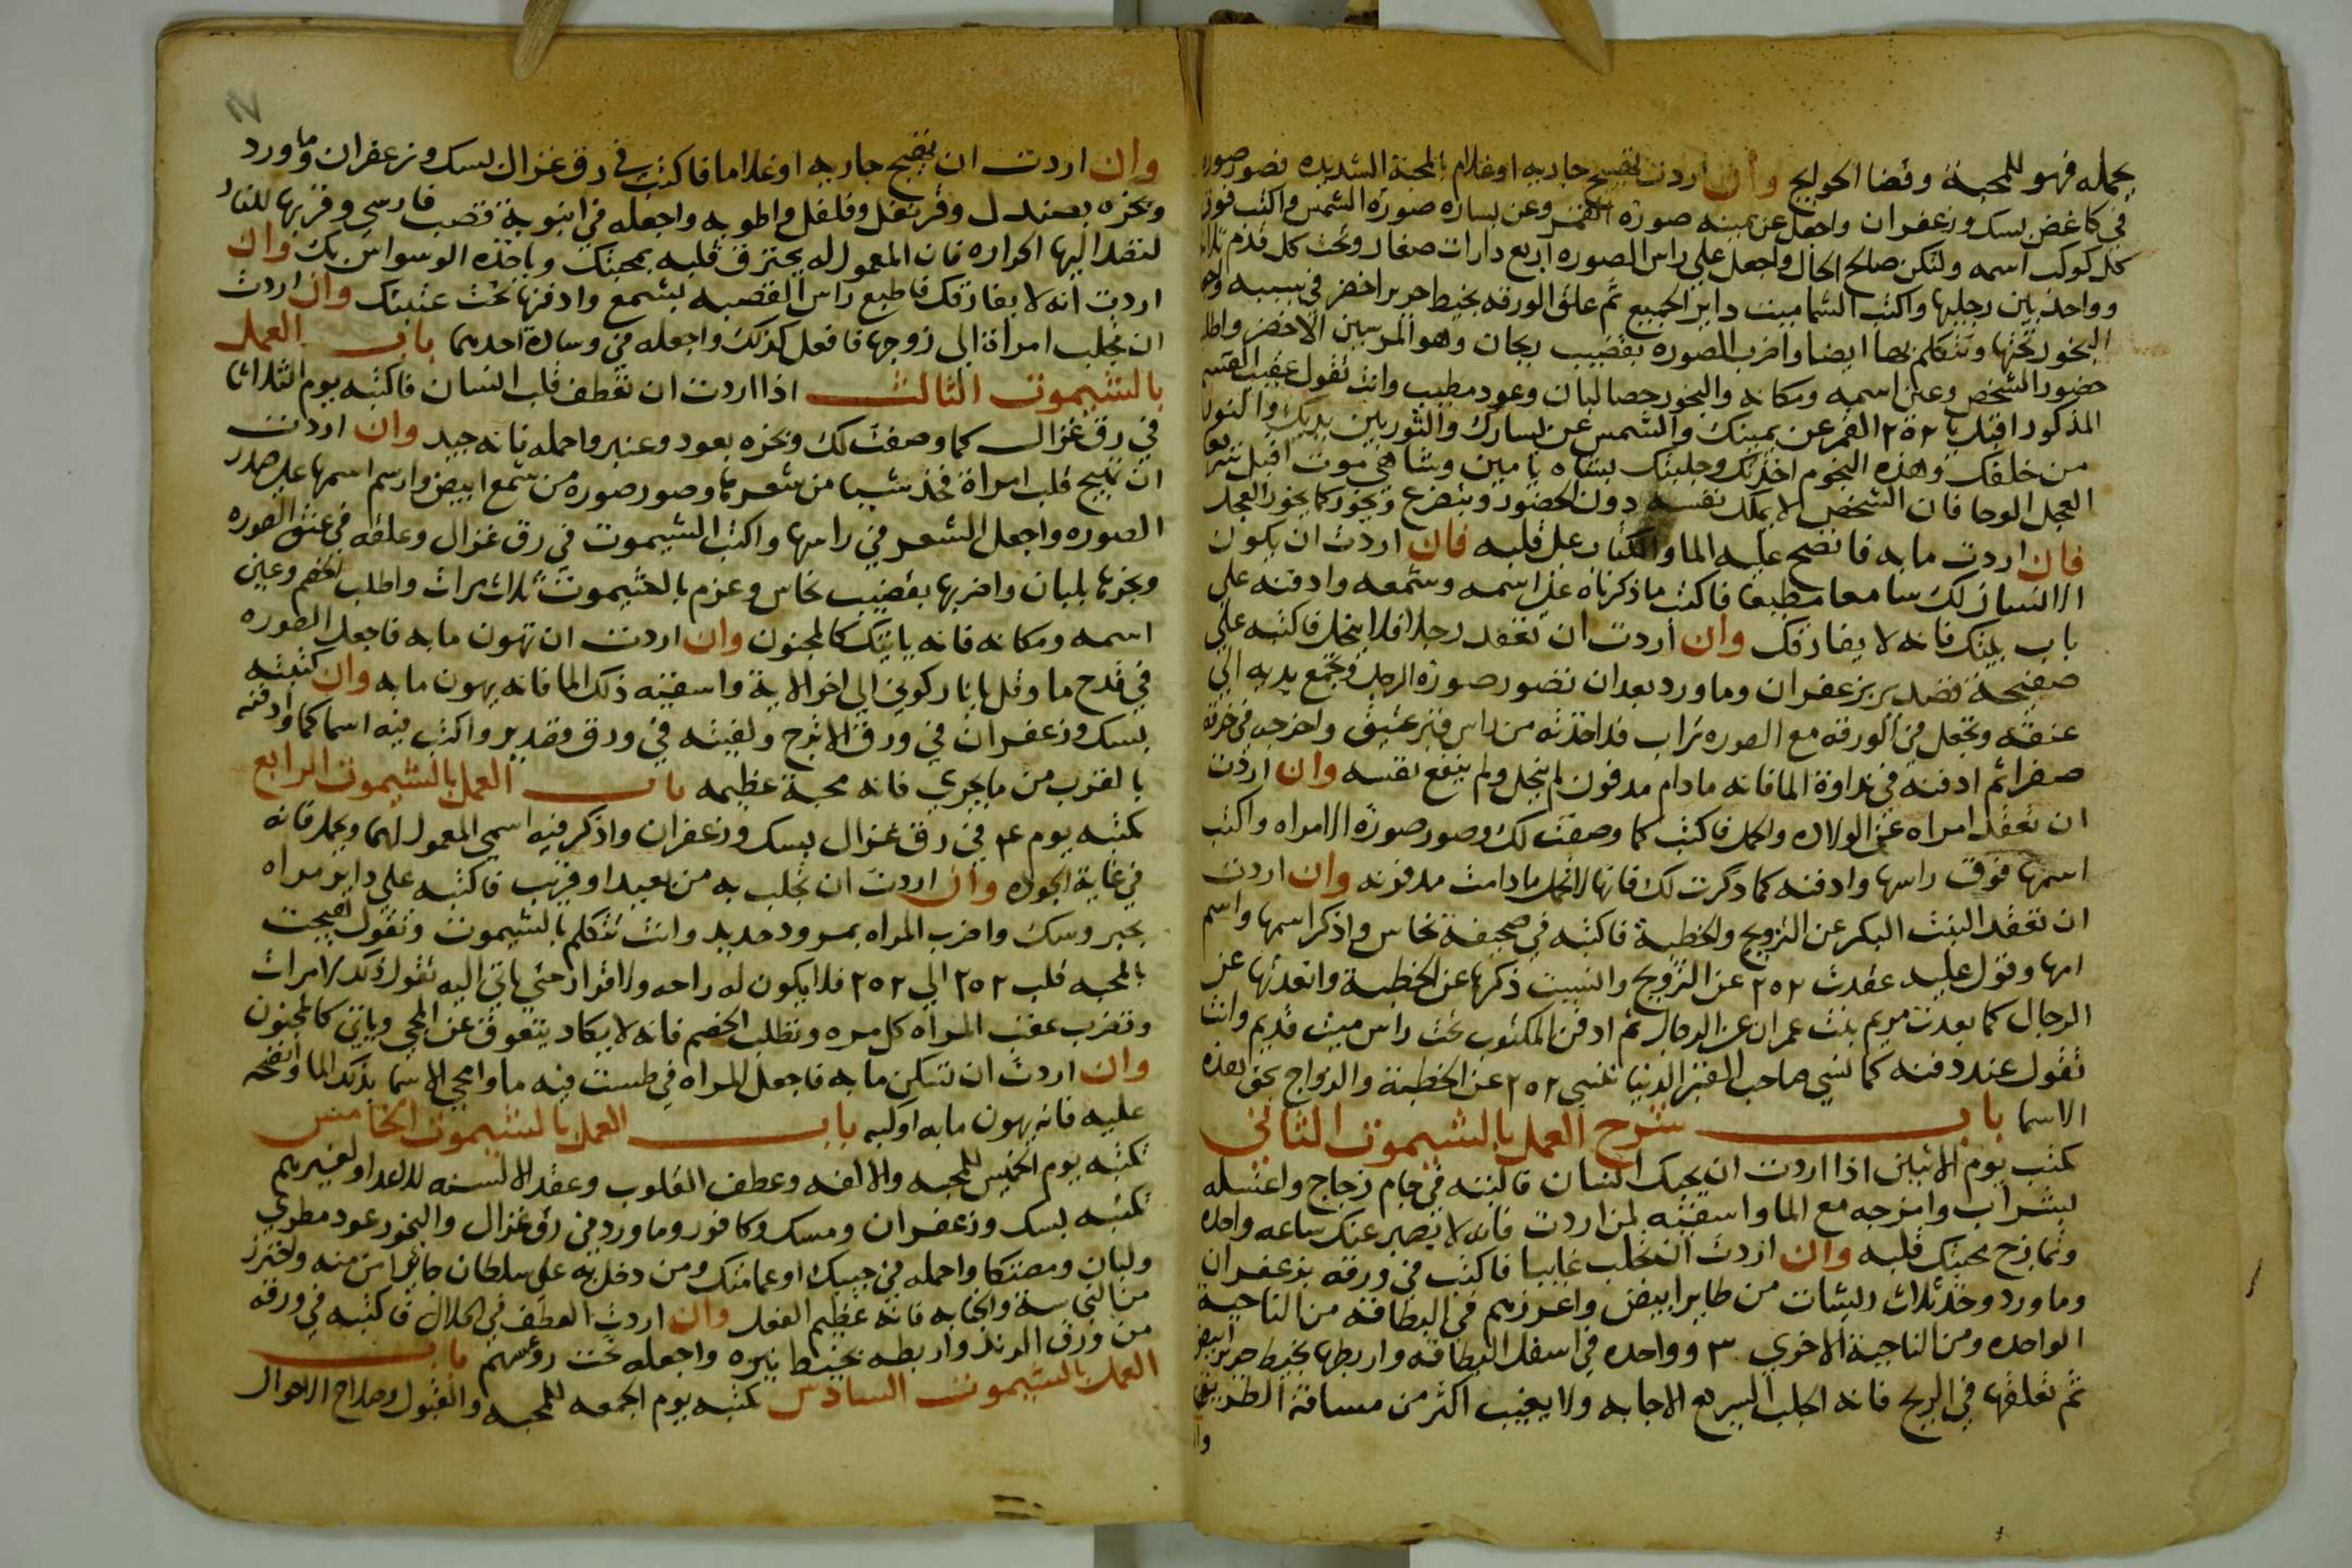 يحمله فهو للمحبة وقضا الحوايج وان اردت تهييج جاريه اوغلام بالمحبة الشديده فصور صوره
في كاغض بمسك وزعفران واجعل عن يمينه صورة القمر وعن يساره صورة الشمس واكتب فوق
كل كوكب اسمه ولتكن صالح الحال واجعل علي راس الصوره اربع دارات صغار وتحت كل قدم
وواحد بين رجليها واكتب الشماميت داير الجميع ثم علق الورقه بخيط حرير اخضر في
البخور تحتها وتتكلم بها ايضا واضرب الصوره بقضيب ريحان وهو المرسين الاخضر واطلب
حضور الشخص وعين اسمه ومكانه والبخور حصا لبان وعود مطيب وانت تقول عقيب القسم
المذكور اقبل يا ٢٥٢ القمر عن يمينك والشمس عن يسارك والثور بين يديك
من خلفك وهذه النجوم اخذتك وجلبتك اقبل
العجل الوحا فان الشخص لا يملك نفسه دون الحضور ويتضرع ويخور كما يخور العجل
فان اردت ما به فانضح عليه الما والكتاب علي قلبه فان اردت ان يكون
الانسان لك سامعا مطيعا فاكتب ما ذكرناه علي اسمه وشمعه وادفنه علي
باب بيتك فانه لا يفارقك وان اردت ان تعقد رجلا فلا ينحل فاكتبه علي
صفيحة قصدير بزعفران وماورد بعد ان تصور صورة الرجل وتجمع يديه الي
عنقه وتجعل في الورقه مع الصوره تراب قد اخذته من راس قبر عتيق واخرجه في خرقة
صفرا ثم ادفنه في نداوة الما فانه ما دام مدفون لم ينحل ولم ينفع نفسه وان اردت
ان تعقد امراه عن الولاده والحمل فاكتب كما وصفت لك وصور صورة الامراه واكتب
اسمها فوق راسها وادفنه كما ذكرت لك فانها لا تحمل مادامت مدفونه وان اردت
ان تعقد البنت البكر عن التزويج والخطبة فاكتبه في صحيفة نحاس واذكر اسمها واسم
امها وقول عليه عقدت ٢٥٢ عن التزويج والنسيت ذكرها عن الخطبة وابعدتها عن
الرجال كما بعدت مريم بنت عمران عن الرجال ثم ادفن المكتوب تحت راس ميت قديم وانت
تقول عند دفنه كما نسي صاحب القبر الدنيا تنسي ٢٥٢ عن الخطبة والزواج بحق هذه
الاسما باب شرح العمل بالشيموت الثاني
كتب يوم الاثنين اذا اردت ان يحبك انسان فاكتبه في جام زجاج واغسله
بشراب وامزجه مع الما واسقيته لمن اردت فانه لا يصبر عنك ساعه واحده
وتمازج محبتك قلبه وان اردت ان تجلب غايبا فاكتب في ورقه بزعفران
وماورد وخذ ثلاث ريشات من طاير ابيض واغرزهم في البطاقه من الناحية
الواحده ومن الناحية الاخري ٣ وواحده في اسفل البطاقه واربطها بخيط حرير ابيض
ثم تعلقها في الريح فانه اجلب السريع الاجابه ولا يغيب اكثر من مسافة الطريق
وان
وان اردت ان تهيج جاريه اوغلاما فاكتب في رق غزال بمسك وزعفران وماورد
وبخره بصندل وقرنفل وفلفل واطويه واجعله في انبوبة قصب فارسي وقربها للنار
لتصل اليها الحراره فان المعمول له يحترق قلبه بمحبتك وياخذه الوسواس بك وان
اردت انه لا يفارقك فاطبع راس القصبه بشمع وادفنها تحت عتبتك وان اردت
ان تجلب امراة الي زوجها فافعل كذلك واجعله في وسادة احدهما باب العمل
بالشيموت الثالث اذا اردت ان تعطف قلب انسان فاكتبه يوم الثلاثا
في رق غزال كما وصفت لك وبخره بعود وعنبر واحمله فانه جيد وان اردت
ان تهيج قلب امراة فخذ شيا من شعرها وصور صوره من شمع ابيض وارسم اسمها علي صدر
الصوره واجعل الشعر في راسها واكتب الشيموت في رق غزال وعلقه في عنق الصوره
وبخرها بلبان واضربها بقضيب نحاس وعزم بالشيموت ثلاث مرات واطلب الخصم وعين
اسمه ومكانه فانه ياتيك كالمجنون وان اردت ان تهون ما به فاجعل الصوره
في قدح ما وقل يا نار كوني الي اخر الاية واسقيته ذلك الما فانه يهون ما به وان كتبته
بمسك وزعفران في ورق الاترج ولفيته في ورق قصدير واكتب فيه اسما كما وادفنه
بالقرب من ما يجري فانه محبة عظيمه باب العمل بالشيموت الرابع
تكتبه يوم ٤ في رق غزال بمسك وزعفران واذكر فيه اسمي المعمول لهما ويحمل فانه
في غاية الجوده وان اردت ان تجلب به من بعيد او قريب فاكتبه علي داير مراه
بحبر ومسك واضرب المراه بمرود حديد وانت تتكلم بالشيموت وتقول هيجت
بالمحبه قلب ٢٥٢ الي ٢٥٢ فلا يكون له راحه ولا قرار حتي ياتي اليه تقول ذلك مرات
وتضرب عقب المراه كل مره وتطلب الخصم فانه لا يكاد يتعوق عن المجي وياتي كالمجنون
وان اردت ان تسكن ما به فاجعل المراه في طست فيه ما وامحي الاسما بذلك الما وانضحه
عليه فانه يهون ما به اوكيه باب العمل بالشيموت الخامس
تكتبه يوم الخميس للمحبه والالفه وعطف القلوب وعقد الالسنه للاعدا ولغيرهم
تكتبه بمسك وزعفران ومسك وكافور وماورد في رق غزال والبخور عود مطري
ولبان ومصتكا واحمله في جيبك او عمامتك ومن دخل به علي سلطان جاير امن منه واحترز
من النجاسة والجنابه فانه عظيم الفعل وان اردت العطف في الحلال فاكتبه في ورقه
من ورق الرند واربطه بخيط نيره واجعله تحت روسهم باب
العمل بالشيموت السادس تكتبه يوم الجمعه للمحبه والقبول وصلاح الاحوال